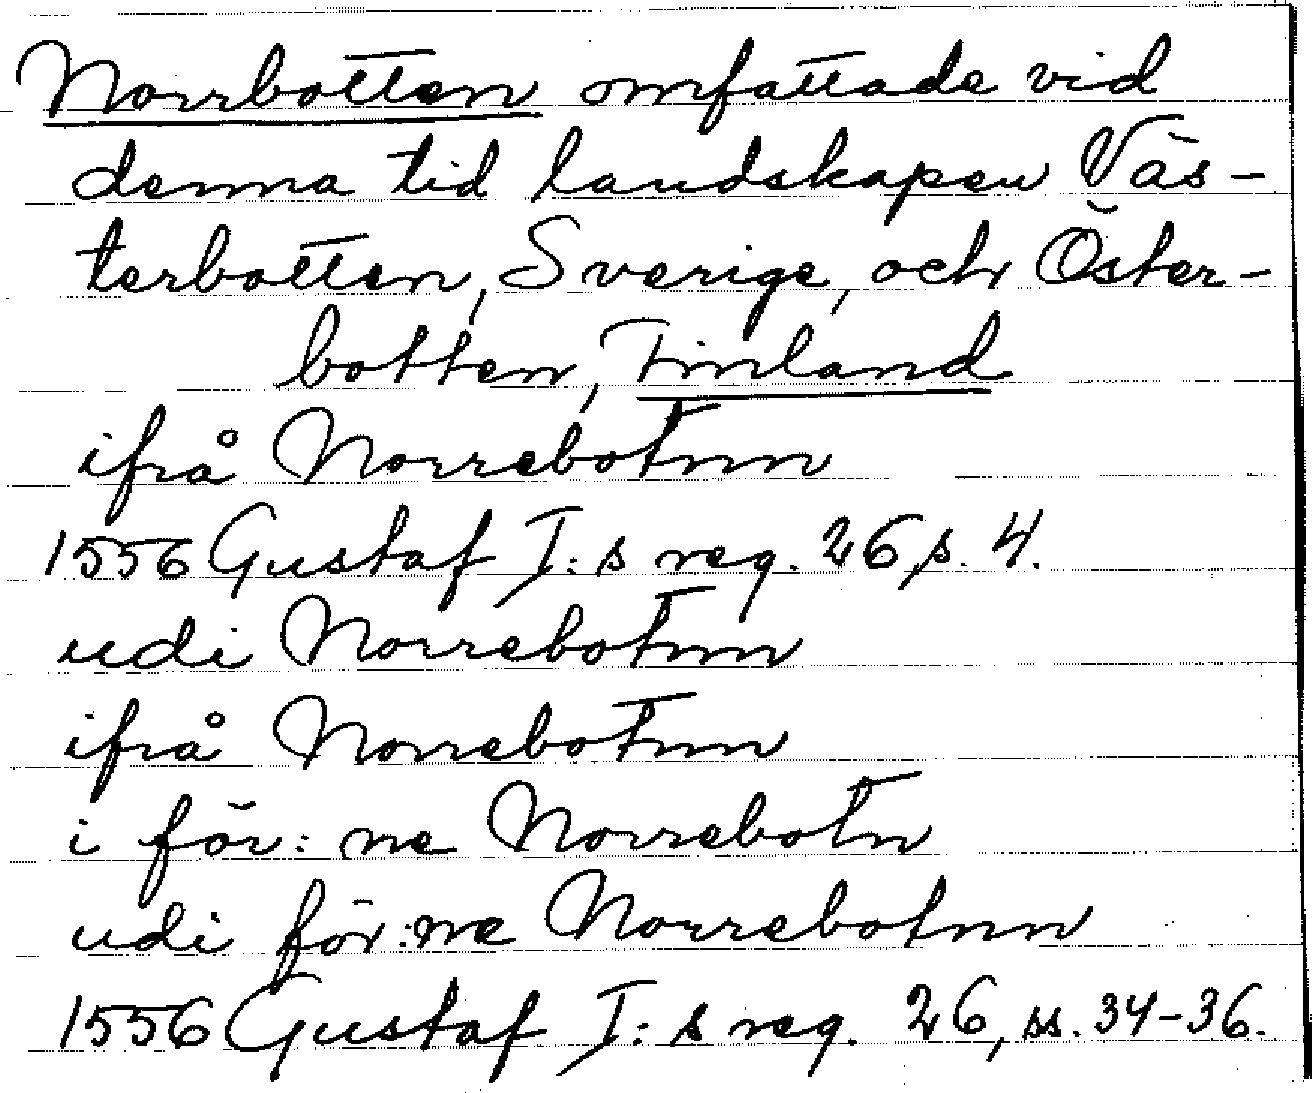 Norrbotten omfattade vid
denna tid landskapen Väs-
terbotten, Sverige, och Öster-
botten, Finland
ifrå Norrebotnn
1556 Gustaf I:s reg. 26, s. 4.
udi Norrebotnn
ifrå Norrebotnn
i för:ne Norrebotn
udi för:ne Norrebotnn
1556 Gustaf I:s reg. 26, ss. 34-36.